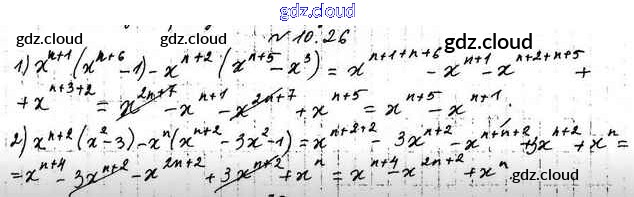 gdz.cloud
№ 10.26
gdz.cloud gdz.cloud gdz.cloud
1) x^{n+1}(x^{n+6} - 1) - x^{n+2}(x^{n+5} - x^3) = x^{n+1+n+6} - x^{n+1} - x^{n+2+n+5} +
+ x^{n+3+2} = x^{2n+7} - x^{n+1} - x^{2n+7} + x^{n+5} = x^{n+5} - x^{n+1}.
2) x^{n+2}(x^2 - 3) - x^n(x^{n+2} - 3x^2 - 1) = x^{n+2+2} - 3x^{n+2} - x^{n+n+2} + 3x^{n+2} + x^n =
= x^{n+4} - 3x^{n+2} - x^{2n+2} + 3x^{n+2} + x^n = x^{n+4} - x^{2n+2} + x^n
gdz.cloud gdz.cloud